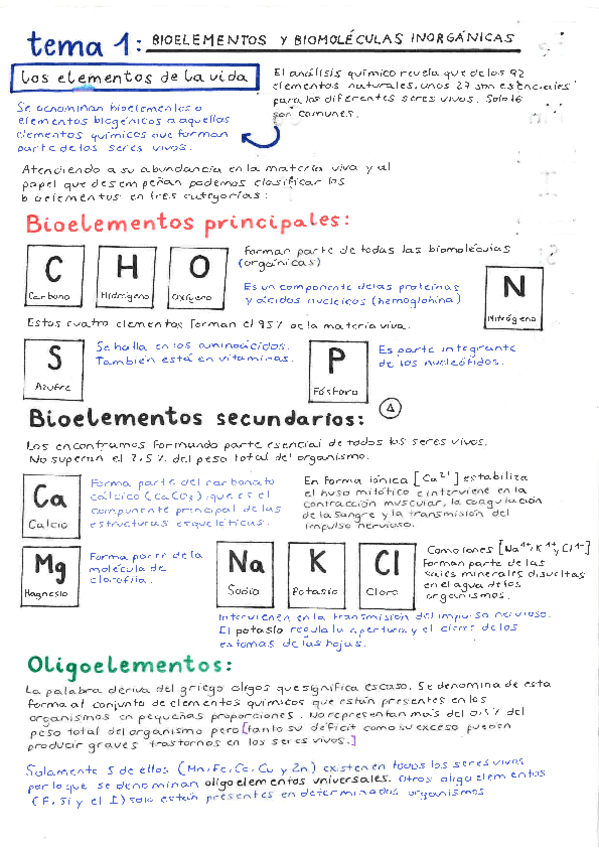 tema 1: BIOELEMENTOS Y BIOMOLÉCULAS INORGÁNICAS
Los elementos de la vida
El análisis químico revela que de los 92
elementos naturales, unos 27 son esenciales
para los diferentes seres vivos. Solo 16
son comunes.
Se denominan bioelementos o
elementos biogénicos a aquellos
elementos químicos que forman
parte de los seres vivos.
Atendiendo a su abundancia en la materia viva y al
papel que desempeñan podemos clasificar los
bioelementos en tres categorías:
Bioelementos principales:
C
Carbono
H
Hidrógeno
O
Oxígeno
Forman parte de todas las biomoléculas
(orgánicas)
Es un componente de las proteínas
y ácidos nucleicos (hemoglobina)
N
Nitrógeno
Estos cuatro elementos forman el 95% de la materia viva.
S
Azufre
Se halla en los aminoácidos.
También está en vitaminas.
P
Fósforo
Es parte integrante
de los nucleótidos.
Bioelementos secundarios:
Los encontramos formando parte esencial de todos los seres vivos.
No superan el 2,5% del peso total del organismo.
Ca
Calcio
Forma parte del carbonato
cálcico (CaCO₃), que es el
componente principal de las
estructuras esqueléticas.
En forma iónica [Ca²⁺] estabiliza
el huso mitótico e interviene en la
contracción muscular, la coagulación
de la sangre y la transmisión del
impulso nervioso.
Mg
Magnesio
Forma parte de la
molécula de
clorofila.
Na
Sodio
K
Potasio
Cl
Cloro
Como iones [Na¹⁺, K¹⁺ y Cl¹⁻]
forman parte de las
sales minerales disueltas
en el agua de los
organismos.
Intervienen en la transmisión del impulso nervioso.
El potasio regula la apertura y el cierre de los
estomas de las hojas.
Oligoelementos:
La palabra deriva del griego oligos que significa escaso. Se denomina de esta
forma al conjunto de elementos químicos que están presentes en los
organismos en pequeñas proporciones. No representan más del 0,5% del
peso total del organismo pero [tanto su déficit como su exceso pueden
producir graves trastornos en los seres vivos.]
Solamente 5 de ellos (Mn, Fe, Co, Cu y Zn) existen en todos los seres vivos
por lo que se denominan oligoelementos universales. Otros oligoelementos
(F, Si y el I) solo están presentes en determinados organismos